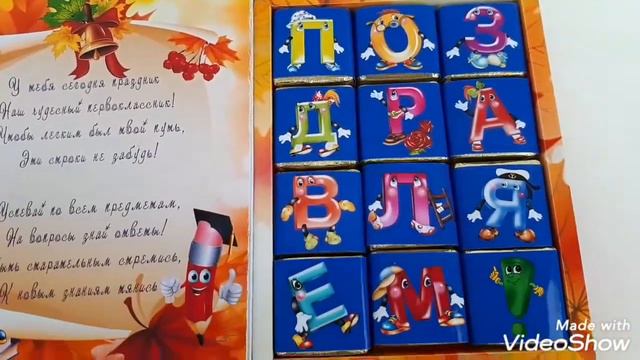 У тебя сегодня праздник
Наш чудесный первоклассник!
Чтобы легким был твой путь,
Эти строки не забудь!
Успевай по всем предметам,
На вопросы знай ответы!
Быть старательным стремись,
К новым знаниям тянись
П О З
Д Р А
В Л Я
Е М !
Made with
VideoShow